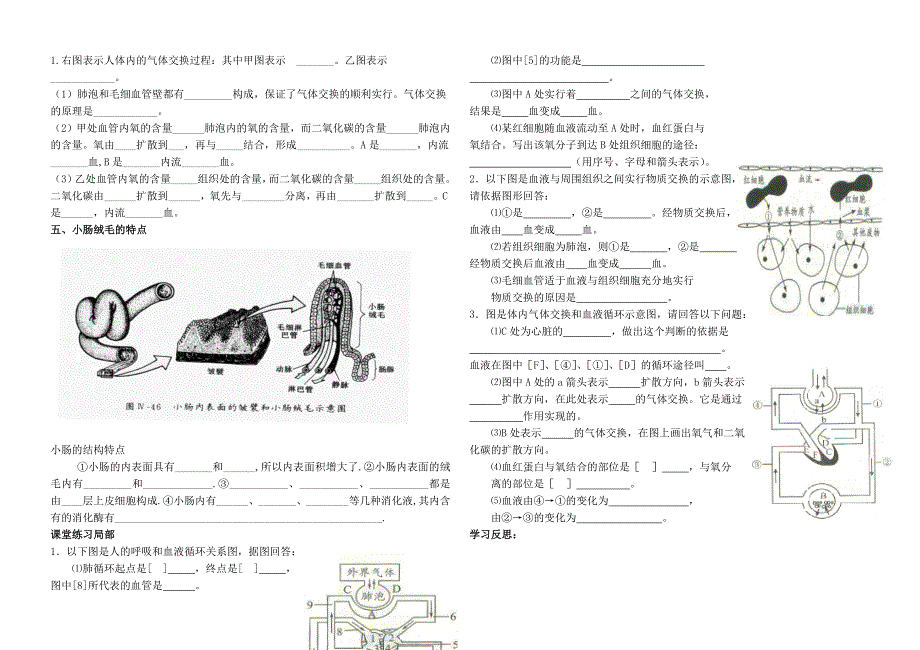 1.右图表示人体内的气体交换过程：其中甲图表示 ______。乙图表示
___________。
（1）肺泡和毛细血管壁都有________构成，保证了气体交换的顺利实行。气体交换
的原理是___________。
（2）甲处血管内氧的含量_____肺泡内的氧的含量，而二氧化碳的含量_____肺泡内
的含量。氧由____扩散到___，再与_____结合，形成_________。A是______，内流
______血,B是______内流_____血。
（3)乙处血管内氧的含量_____组织处的含量，而二氧化碳的含量_____组织处的含量。
二氧化碳由_____扩散到______，氧先与_______分离，再由______扩散到_____。C
是_____，内流______血。
五、小肠绒毛的特点
毛细血管
小肠
绒毛
毛细淋
巴管
皱襞
动脉
淋巴管
静脉
肠腺
图Ⅳ-46 小肠内表面的皱襞和小肠绒毛示意图
小肠的结构特点
①小肠的内表面具有______和_____,所以内表面积增大了.②小肠内表面的绒
毛内有________和___________.③_________、___________、___________都是
由___层上皮细胞构成.④小肠内有_____、______、________等几种消化液,其内含
有的消化酶有____________________________________________.
课堂练习局部
1．以下图是人的呼吸和血液循环关系图，据图回答：
⑴肺循环起点是[ ]____，终点是[ ]____，
图中[8]所代表的血管是_____。
外界气体
C D
肺泡
A
9
6
8
1 2
5
3 4
⑵图中[5]的功能是____________________
_______________________。
⑶图中A处实行着_________之间的气体交换，
结果是____血变成____血。
⑷某红细胞随血液流动至A处时，血红蛋白与
氧结合。写出该氧分子到达B处组织细胞的途径：
________________（用序号、字母和箭头表示）。
2．以下图是血液与周围组织之间实行物质交换的示意图，
请依据图形回答：
⑴①是________，②是________。经物质交换后，
血液由___血变成____血。
⑵若组织细胞为肺泡，则①是______，②是______
经物质交换后血液由___血变成____血。
⑶毛细血管适于血液与组织细胞充分地实行
物质交换的原因是______________。
红细胞
血流→
红细胞
①
营养物质
水
②
血浆
其他废物
组织细胞
3．图是体内气体交换和血液循环示意图，请回答以下问题：
⑴C处为心脏的________，做出这个判断的依据是
_________________________________________。
血液在图中［F］、［④］、［①］、［D］的循环途径叫___。
⑵图中A处的a箭头表示_____扩散方向，b箭头表示
_______扩散方向，在此处表示____的气体交换。它是通过
________作用实现的。
⑶B处表示_____的气体交换，在图上画出氧气和二氧
化碳的扩散方向。
⑷血红蛋白与氧结合的部位是［ ］____，与氧分
离的部位是［ ］________。
⑸血液由④→①的变化为_____________，
由②→③的变化为_____________。
学习反思：
A
a
b
④
①
D
E
C
F
③
②
B